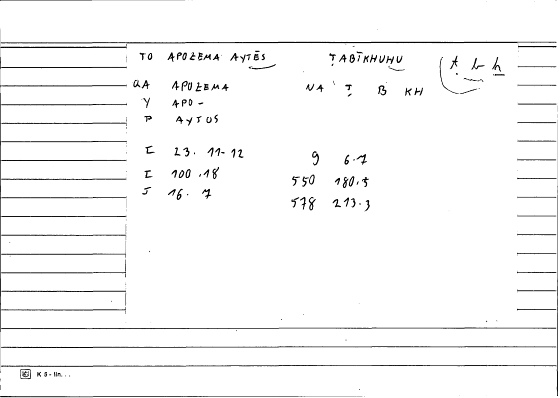 TO APOZEMA AYTĒS ṬABĪKHUHU ṭ b ḫ
QA APOZEMA NA' Ṭ B KH
Y APO-
P AYTOS
I 23. 11-12 9 6.7
I 100.18 550 180.5
J 16. 7 578 213.3
K 5 - lin...